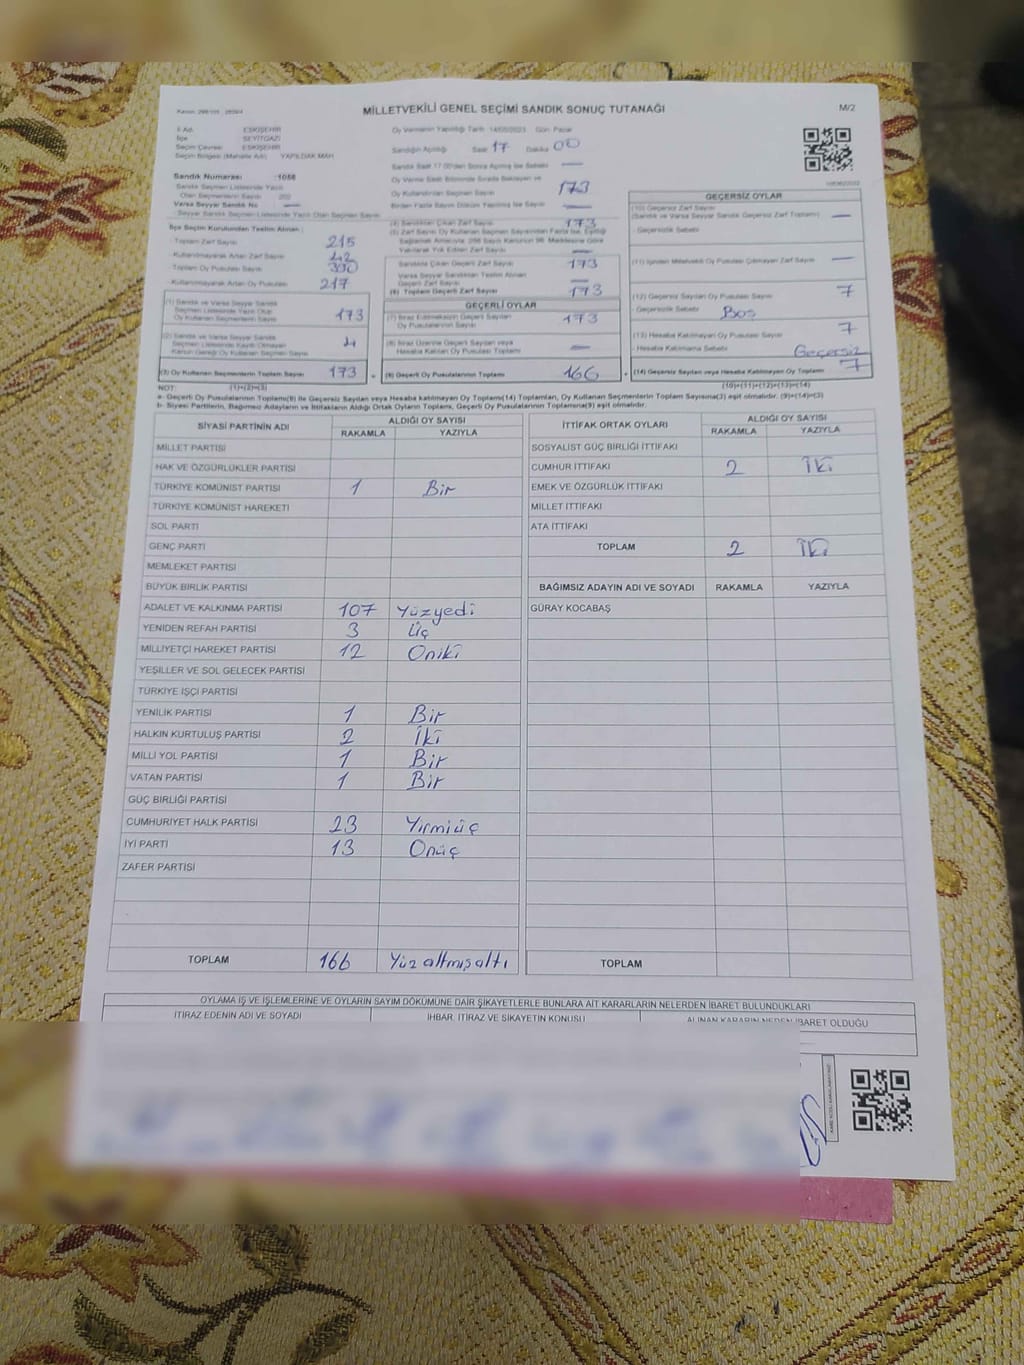 MİLLETVEKİLİ GENEL SEÇİMİ SANDIK SONUÇ TUTANAĞI
M/2
İl Adı ESKİŞEHİR
İlçe SEYİTGAZİ
Seçim Çevresi ESKİŞEHİR
Seçim Bölgesi (Mahalle Adı) YAPILDAK MAH
Sandık Numarası :1058
Sandık Seçmen Listesinde Yazılı
Olan Seçmenlerin Sayısı
Varsa Seyyar Sandık No —
Seyyar Sandık Seçmen Listesinde Yazılı Olan Seçmen Sayısı
İlçe Seçim Kurulundan Teslim Alınan ;
-Toplam Zarf Sayısı 215
-Kullanılmayarak Artan Zarf Sayısı 42
-Toplam Oy Pusulası Sayısı
-Kullanılmayarak Artan Oy Pusulası 217
(1) Sandık ve Varsa Seyyar Sandık
Seçmen Listesinde Yazılı Olup
Oy Kullanan Seçmenlerin Sayısı 173
(2) Sandık ve Varsa Seyyar Sandık
Seçmen Listesinde Kayıtlı Olmayan
Kanun Gereği Oy Kullanan Seçmen Sayısı
(3) Oy Kullanan Seçmenlerin Toplam Sayısı 173
NOT: (1)+(2)=(3)
Oy Vermenin Yapıldığı Tarih 14/05/2023 Gün Pazar
Sandığın Açıldığı Saat 17 Dakika 00
Sandık Saat 17:00'den Sonra Açılmış İse Sebebi —
Oy Verme Saati Bitiminde Sırada Bekleyen ve
Oy Kullandırılan Seçmen Sayısı 173
Birden Fazla Sayım Döküm Yapılmış İse Sayısı —
(4) Sandıktan Çıkan Zarf Sayısı 173
(5) Zarf Sayısı Oy Kullanan Seçmen Sayısından Fazla İse, Eşitliği
Sağlamak Amacıyla; 298 Sayılı Kanunun 98. Maddesine Göre
Yakılarak Yok Edilen Zarf Sayısı —
Sandıkta Çıkan Geçerli Zarf Sayısı 173
Varsa Seyyar Sandıktan Teslim Alınan
Geçerli Zarf Sayısı —
(6) Toplam Geçerli Zarf Sayısı 173
GEÇERLİ OYLAR
(7) İtiraz Edilmeksizin Geçerli Sayılan
Oy Pusulalarının Sayısı 173
(8) İtiraz Üzerine Geçerli Sayılan veya
Hesaba Katılan Oy Pusulası Toplamı —
(9) Geçerli Oy Pusulalarının Toplamı 166
GEÇERSİZ OYLAR
(10) Geçersiz Zarf Sayısı
(Sandık ve Varsa Seyyar Sandık Geçersiz Zarf Toplamı) —
- Geçersizlik Sebebi
(11) İçinden Milletvekili Oy Pusulası Çıkmayan Zarf Sayısı —
(12) Geçersiz Sayılan Oy Pusulası Sayısı 7
- Geçersizlik Sebebi Boş
(13) Hesaba Katılmayan Oy Pusulası Sayısı 7
- Hesaba Katılmama Sebebi Geçersiz
(14) Geçersiz Sayılan veya Hesaba Katılmayan Oy Toplamı 7
(10)+(11)+(12)+(13)=(14)
a- Geçerli Oy Pusulalarının Toplamı(9) ile Geçersiz Sayılan veya Hesaba Katılmayan Oy Toplamı(14) Toplamları, Oy Kullanan Seçmenlerin Toplam Sayısına(3) eşit olmalıdır. (9)+(14)=(3)
b- Siyasi Partilerin, Bağımsız Adayların ve İttifakların Aldığı Ortak Oyların Toplamı, Geçerli Oy Pusulalarının Toplamına(9) eşit olmalıdır.
SİYASİ PARTİNİN ADI ALDIĞI OY SAYISI
RAKAMLA YAZIYLA
MİLLET PARTİSİ
HAK VE ÖZGÜRLÜKLER PARTİSİ
TÜRKİYE KOMÜNİST PARTİSİ 1 Bir
TÜRKİYE KOMÜNİST HAREKETİ
SOL PARTİ
GENÇ PARTİ
MEMLEKET PARTİSİ
BÜYÜK BİRLİK PARTİSİ
ADALET VE KALKINMA PARTİSİ 107 Yüzyedi
YENİDEN REFAH PARTİSİ 3 Üç
MİLLİYETÇİ HAREKET PARTİSİ 12 Oniki
YEŞİLLER VE SOL GELECEK PARTİSİ
TÜRKİYE İŞÇİ PARTİSİ
YENİLİK PARTİSİ 1 Bir
HALKIN KURTULUŞ PARTİSİ 2 İki
MİLLİ YOL PARTİSİ 1 Bir
VATAN PARTİSİ 1 Bir
GÜÇ BİRLİĞİ PARTİSİ
CUMHURİYET HALK PARTİSİ 23 Yirmiüç
İYİ PARTİ 13 Onüç
ZAFER PARTİSİ
TOPLAM 166 Yüz altmışaltı
İTTİFAK ORTAK OYLARI ALDIĞI OY SAYISI
RAKAMLA YAZIYLA
SOSYALİST GÜÇ BİRLİĞİ İTTİFAKI
CUMHUR İTTİFAKI 2 İki
EMEK VE ÖZGÜRLÜK İTTİFAKI
MİLLET İTTİFAKI
ATA İTTİFAKI
TOPLAM 2 İki
BAĞIMSIZ ADAYIN ADI VE SOYADI RAKAMLA YAZIYLA
GÜRAY KOCABAŞ
TOPLAM
OYLAMA İŞ VE İŞLEMLERİNE VE OYLARIN SAYIM DÖKÜMÜNE DAİR ŞİKAYETLERLE BUNLARA AİT KARARLARIN NELERDEN İBARET BULUNDUKLARI
İTİRAZ EDENİN ADI VE SOYADI İHBAR, İTİRAZ VE ŞİKAYETİN KONUSU ALINAN KARARIN NEDEN İBARET OLDUĞU